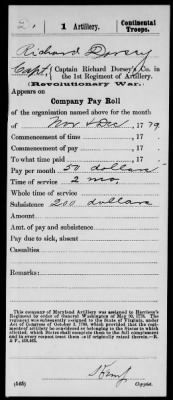 2. | 1 Artillery. | Continental Troops.
Richard Dorsey
Capt, Captain Richard Dorsey's Co. in the 1st Regiment of Artillery.
(Revolutionary War.)
Appears on
Company Pay Roll
of the organization named above for the month
of Nov & Dec, 1779.
Commencement of time , 17
Commencement of pay , 17
To what time paid , 17
Pay per month 50 dollars
Time of service 2 mo,
Whole time of service
Subsistence 200 dollars
Amount
Amt. of pay and subsistence
Pay due to sick, absent
Casualties
Remarks:
This company of Maryland Artillery was assigned to Harrison's
Regiment by order of General Washington of May 30, 1778. The regiment
was subsequently assigned to the State of Virginia, under
Act of Congress of October 3, 1780, which provided that the
regiment
(545) Copyist.